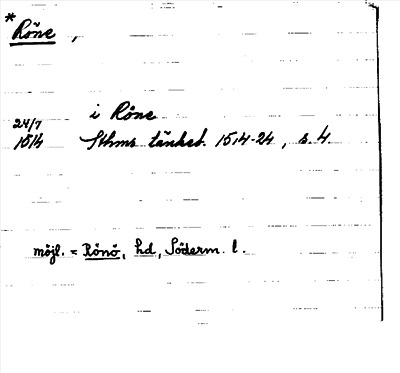 * Röne,
i Röne
24/7
1514 Sthms tänkeb. 1514-24, s. 4.
möjl. = Rönö, hd, Söderm. l.